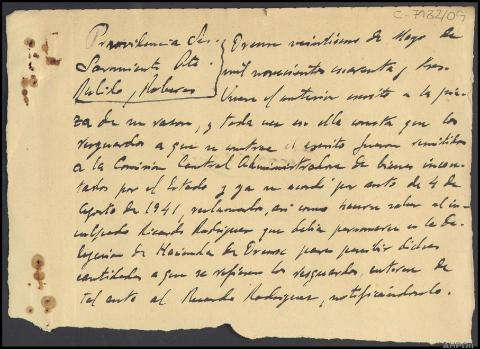 C-7132/09
Providencia Srs. } Orense veinticinco de Mayo de
Sarmiento Ote. mil novecientos cuarenta y tres
Pulido, Roberes Unase el anterior escrito a la pie-
za de su razon, y toda vez en ella consta que los
resguardos a que se contrae el escrito fueron remitidos
a la Comisión Central Administradora de bienes incau-
tados por el Estado y ya se acordó por auto de 4 de
Agosto de 1941, reclamarlos, asi como hacer saber al in-
culpado Ricardo Rodriguez que debia personarse en la De-
legacion de Hacienda de Orense para percibir dichas
cantidades a que se refieren los resguardos, enterese de
tal auto al Ricardo Rodriguez, notificándoselo.